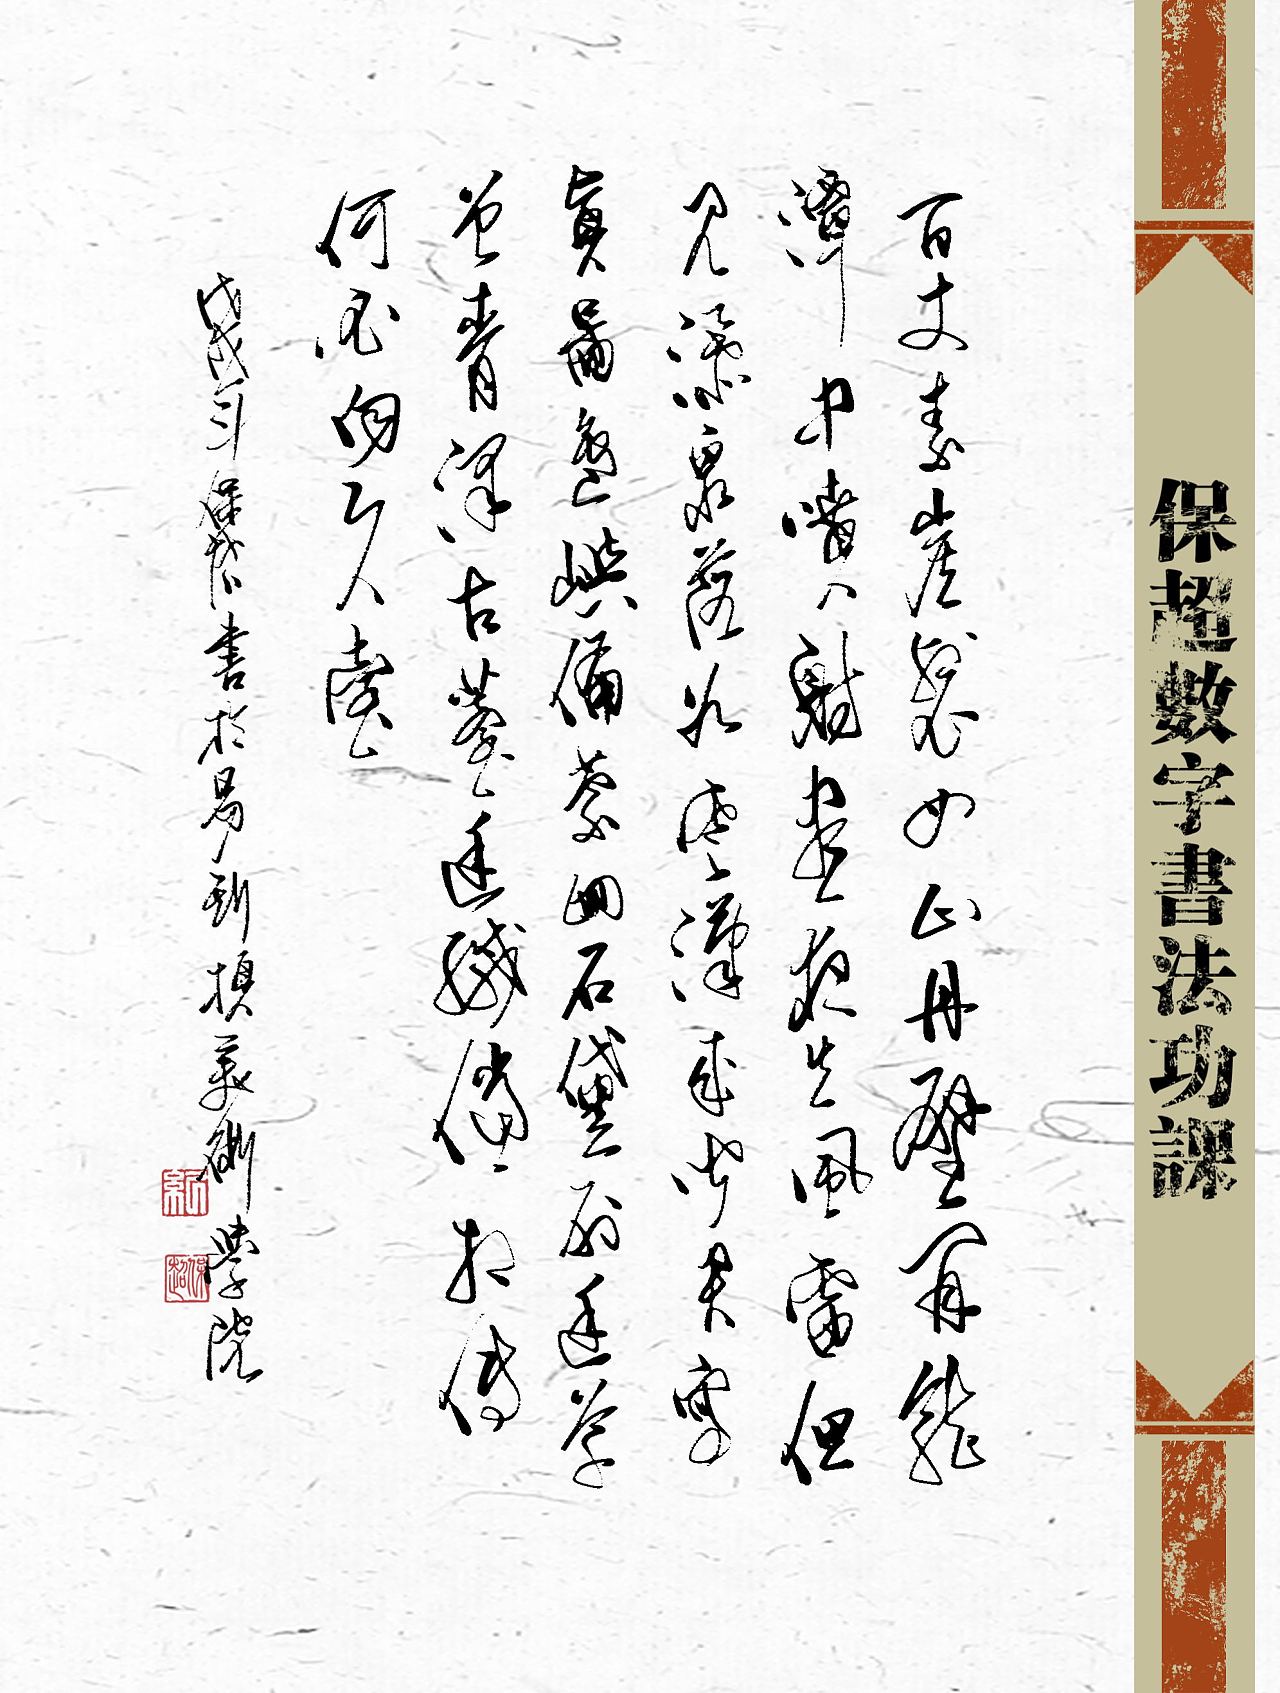 保超數字書法功課
百丈素崖裂四山丹壁開龍
潭中噴射晝夜生風雷但
見瀑泉落如雲漢來聞君寫
真圖島嶼備縈回石黛刷幽草
曾青澤古苔幽緘儻相傳
何必向天臺
戊戌年保超書於易到頂美術學院
保超